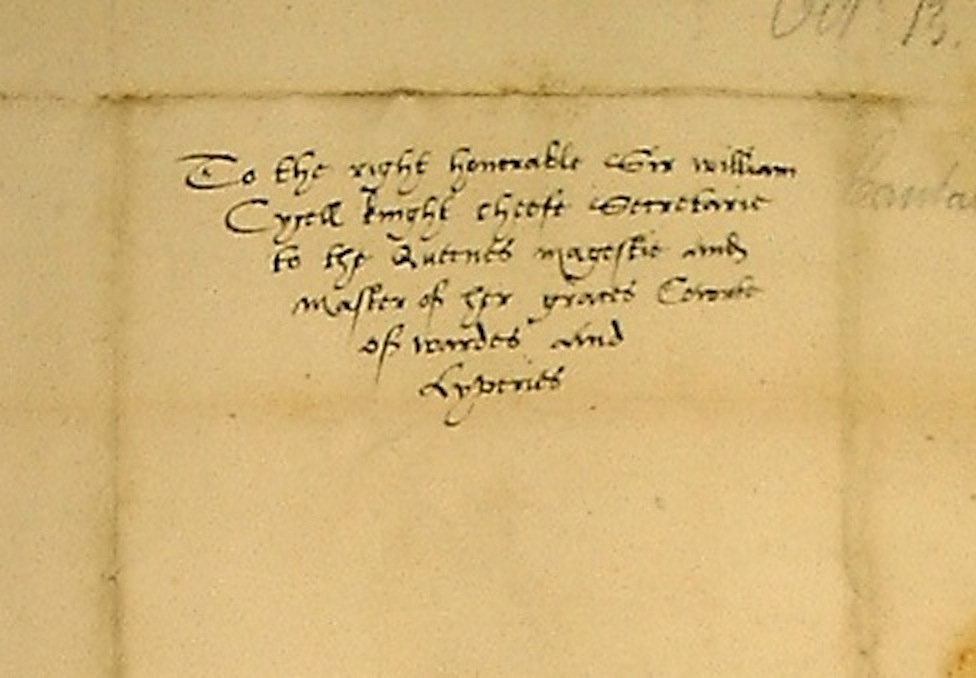 Oct. 13.
To the right honorable Sir william
Cysell knight cheefe Secretarie
to the Queenes magestie and
master of her graces Courte
of wardes and
Lyveries